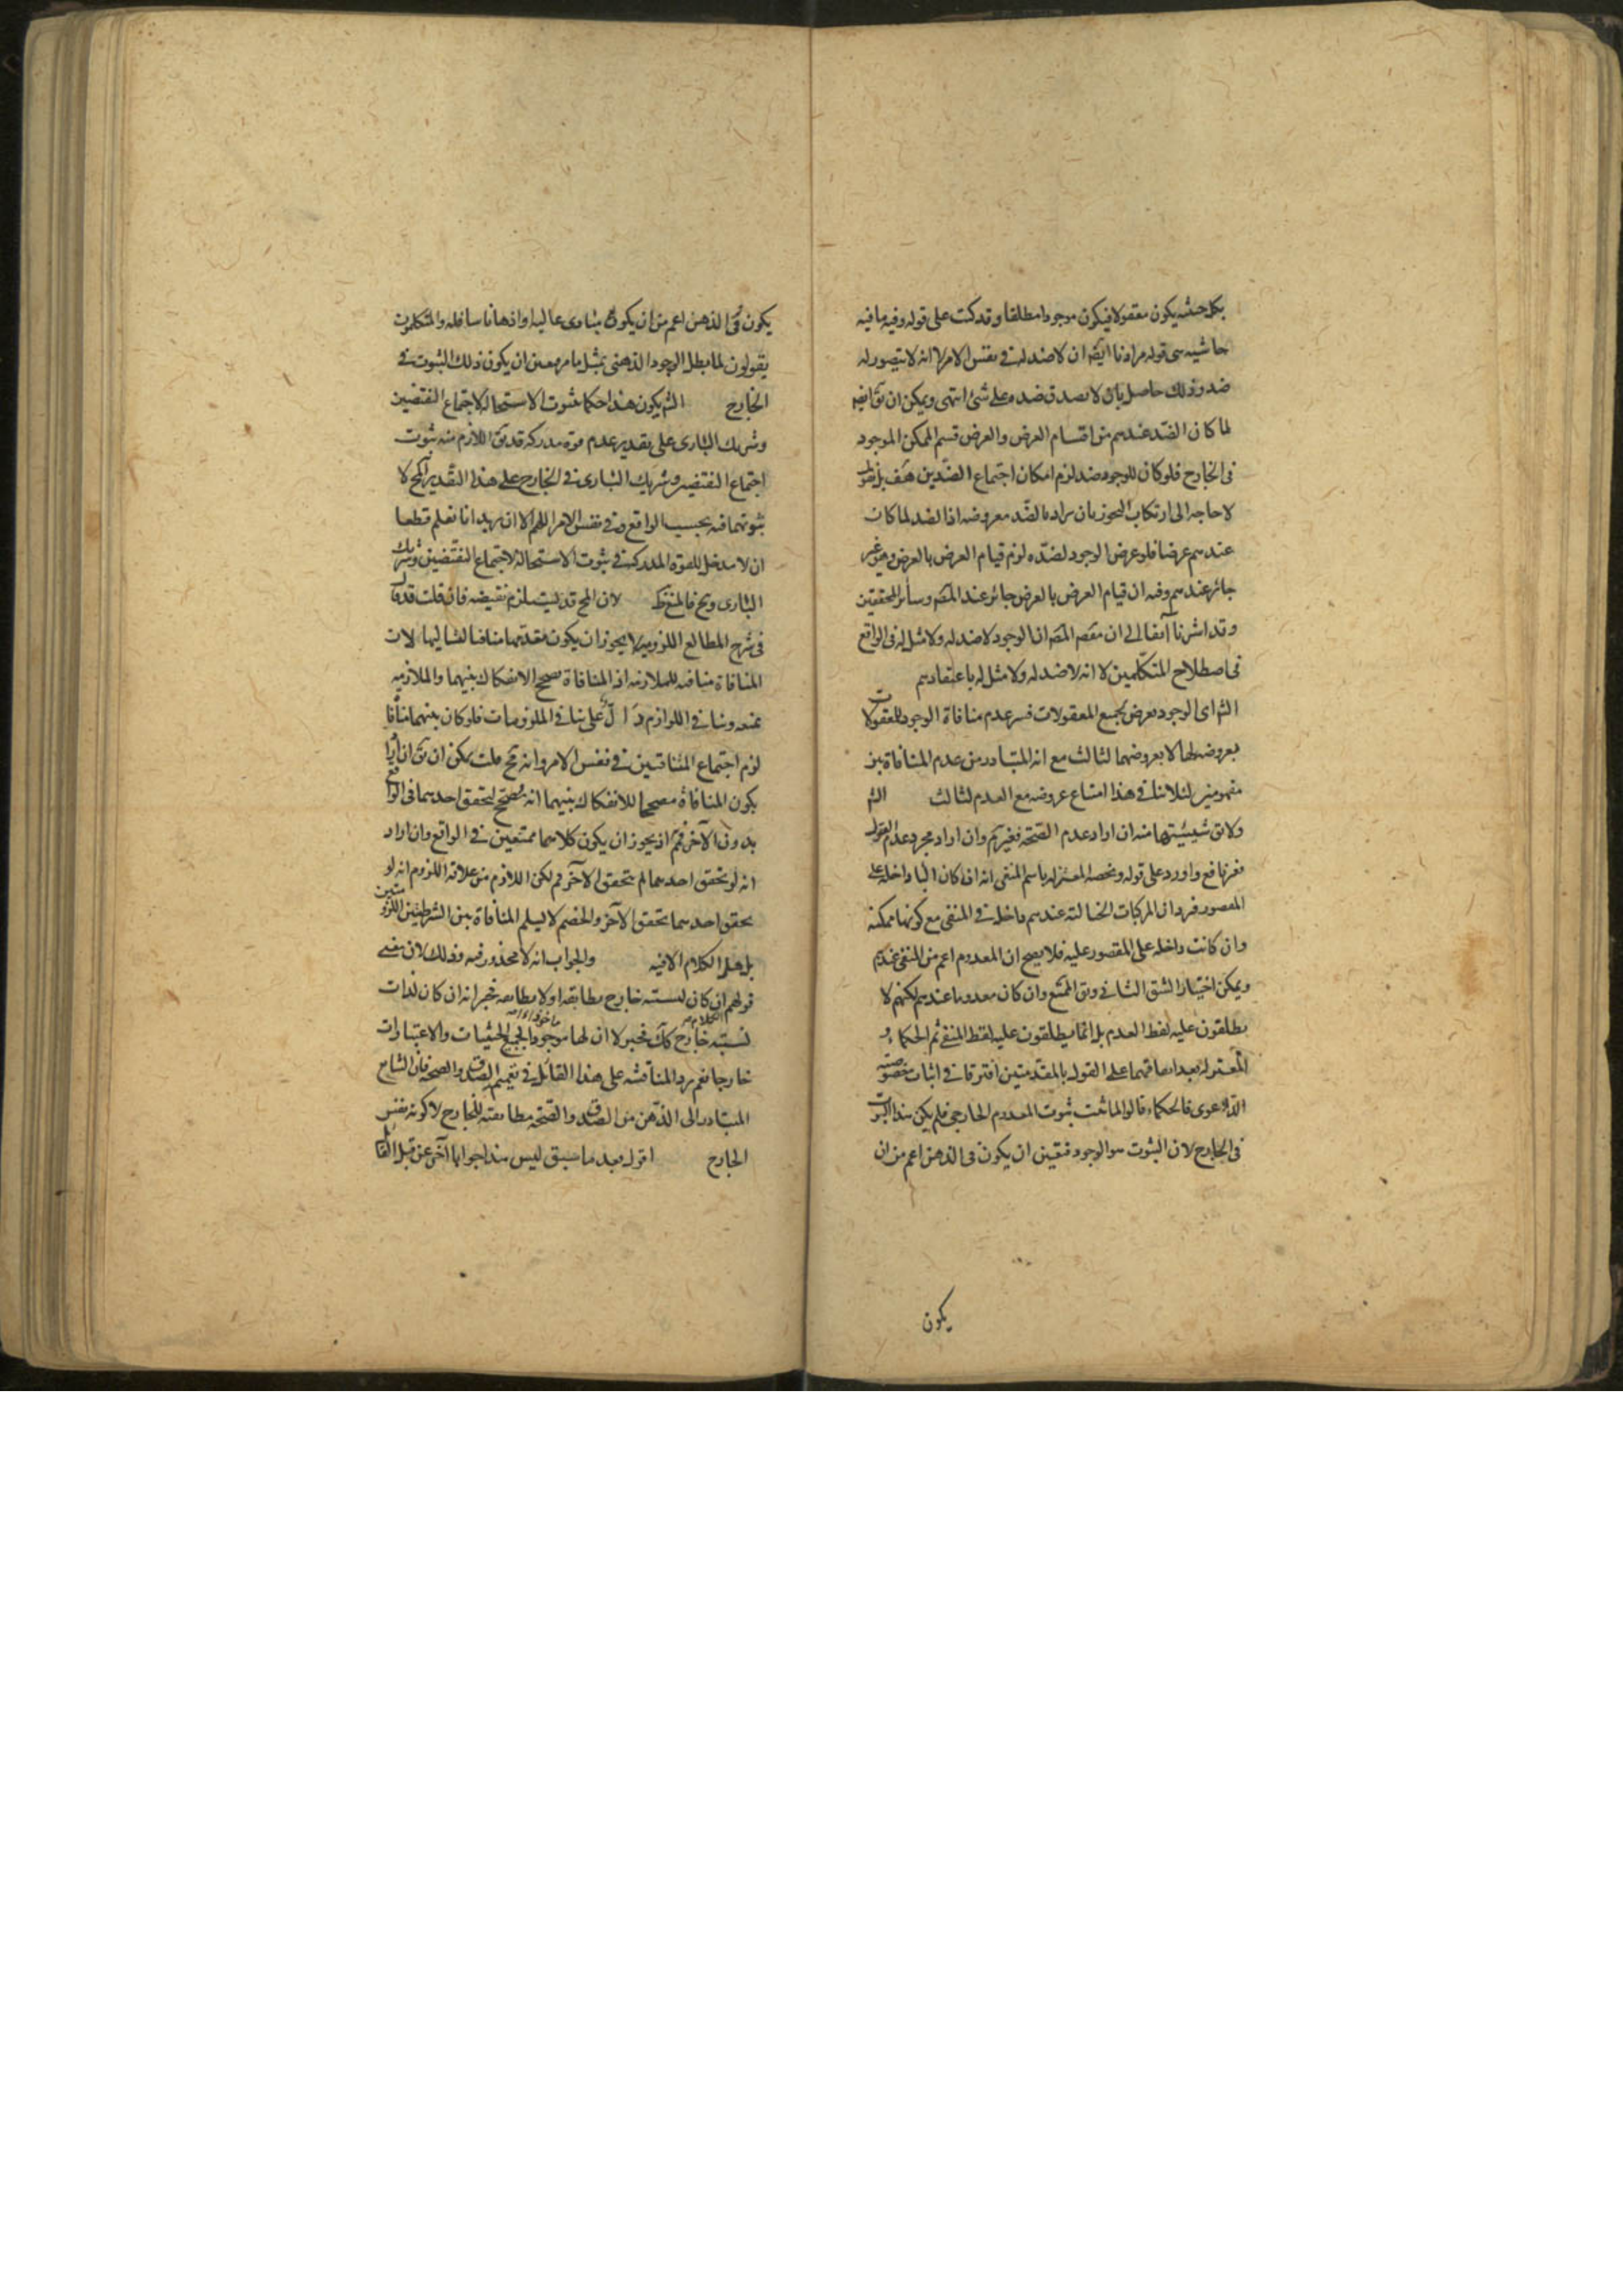 بكل حيثية يكون معقولا فيكون موجودا مطلقا وقد كتب على قوله وفيه ما فيه
حاشية هى قوله مرادنا ايضا ان لا ضد له فى نفس الامر لا انه لا يتصور له
ضد وذلك حاصل بان لا يصدق ضده على شئ انتهى ويمكن ان يق ايضا
لما كان الضد عندهم من اقسام العرض والعرض قسم الممكن الموجود
فى الخارج فلو كان للوجود ضد لزم امكان اجتماع الضدين هف بل نقول
لا حاجة الى ارتكاب التجوز بان يراد بالضد معروضه اذا الضد لما كان
عندهم عرضا فلو عرض الوجود لضده لزم قيام العرض بالعرض وهو غير
جائز عندهم وفيه ان قيام العرض بالعرض جائز عند المصَ وسائر المحققين
وقد اشرنا آنفا الى ان مقصد المصَ ان الوجود لا ضد له ولا مثل له فى الواقع
فى اصطلاح المتكلمين لا انه لا ضد له ولا مثل له باعتقادهم
الشَ اى الوجود يعرض لجميع المعقولات فسر عدم منافاة الوجود للمعقولات
بعروضه لها لا بعروضهما لثالث مع انه المتبادر من عدم المنافاة بين
مفهومين لئلا ينافى هذا امتناع عروضه مع العدم لثالث الشَ
ولا يق شيئيتهما منه ان اراد عدم الصحة فغير مَ وان اراد مجرد عدم القول
فغير نافع واورد على قوله ويخصه المعتزلة باسم المنفى انه ان كان الباء داخلة على
المقصور فيرد ان المركبات الخيالية عندهم داخلة فى المنفى مع كونها ممكنة
وان كانت داخلة على المقصور عليه فلا يصح ان المعدوم اعم من المنفى عندهم
ويمكن اختيار الشق الثانى ويق الممتنع وان كان معدوما عندهم لكنهم لا
يطلقون عليه لفظ العدم بل انما يطلقون عليه لفظ المنفى ثم الحكماء و
المعتزلة بعد اتفاقهما على القول بالمقدمتين افترقا فى اثبات خصوصية
الدعوى فالحكماء قالوا لما ثبت ثبوت المعدوم الخارجى فلم يكن هذا الثبوت
فى الخارج لان الثبوت هو الوجود فتعين ان يكون فى الذهن اعم من ان
يكون
يكون فى الذهن اعم من ان يكون مبادى عالية او اذهانا سافلة والمتكلمون
يقولون لما بطل الوجود الذهنى بمثل ما مر تعين ان يكون ذلك الثبوت فى
الخارج الشَ يكون هذا حكما بثبوت الاستحالة لاجتماع النقيضين
وشريك البارى على تقدير عدم قوة مدركة قد يق اللازم منه ثبوت
اجتماع النقيضين وشريك البارى فى الخارج على هذا التقدير المح لا
ثبوتهما فيه بحسب الواقع وفى نفس الامر اللهم الا ان يريد انا نعلم قطعا
ان لا مدخل للقوة المدركة فى ثبوت الاستحالة لاجتماع النقيضين وشريك
البارى وح فالمنع لان المح قد يستلزم نقيضه فان قلت قد قال
فى شرح المطالع اللزومية لا يجوز ان يكون مقدمها منافيا لتاليها لان
المنافاة منافية للملازمة اذ المنافاة تصحح الانفكاك بينهما والملازمة
تمنعه وتنافى اللوازم دال على تنافى الملزومات فلو كان بينهما منافاة
لزم اجتماع المتنافيين فى نفس الامر وانه مح قلت يمكن ان يق ان اراد
بكون المنافاة مصححا للانفكاك بينهما انه تصحح لتحقق احدهما فى الواقع
بدون الآخر فمَ اذ يجوز ان يكون كلاهما ممتنعين فى الواقع وان اراد
انه لو تحقق احدهما لم يتحقق الآخر فمَ لكن اللازم من علاقة اللزوم انه لو
تحقق احدهما تحقق الآخر والخصم لا يسلم المنافاة بين الشرطيتين اللزوميتين
بل هل الكلام الا فيه والجواب انه لا محذور فيه وذلك لان معنى
قولهم ان كان لنسبته خارج تطابقه او لا تطابقه فخبر انه ان كان لذات
نسبته الكلام خارج كك فخبر لا ان لها موجودا مأخوذا بجميع الحيثيات والاعتبارات
خارجا نعم يرد المناقشة على هذا القائل فى تعميم الصدق والصحة فان الشايع
المتبادر الى الذهن من الصدق والصحة مطابقته للخارج لا كونه نفس
الخارج اقول بعد ما سبق ليس هذا جوابا آخر عن قبل القائل